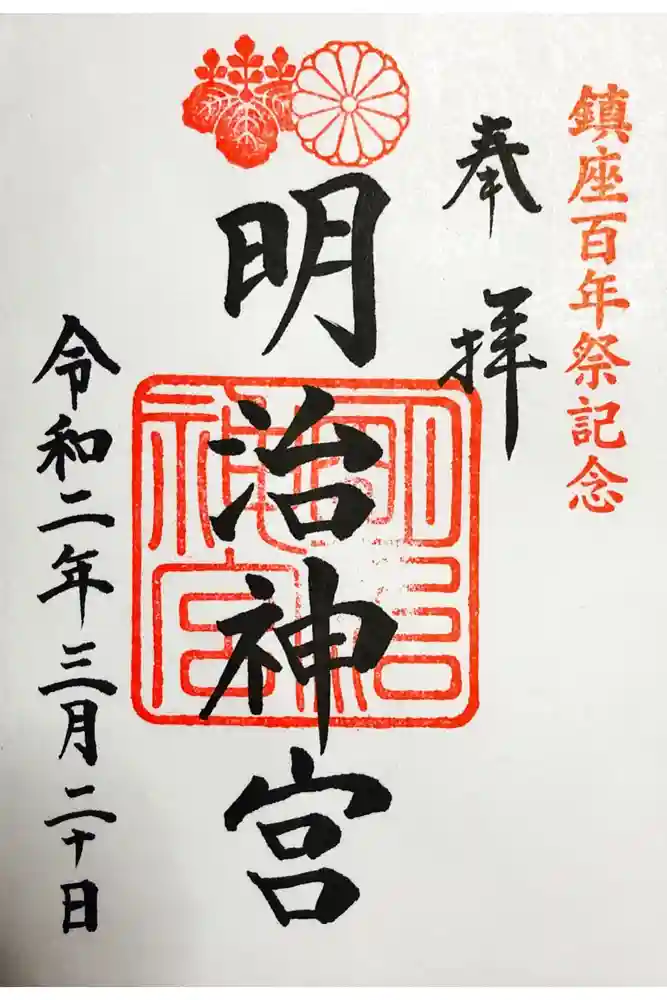 鎮座百年祭記念
奉拝
明治神宮
明治神宮
令和二年三月二十日